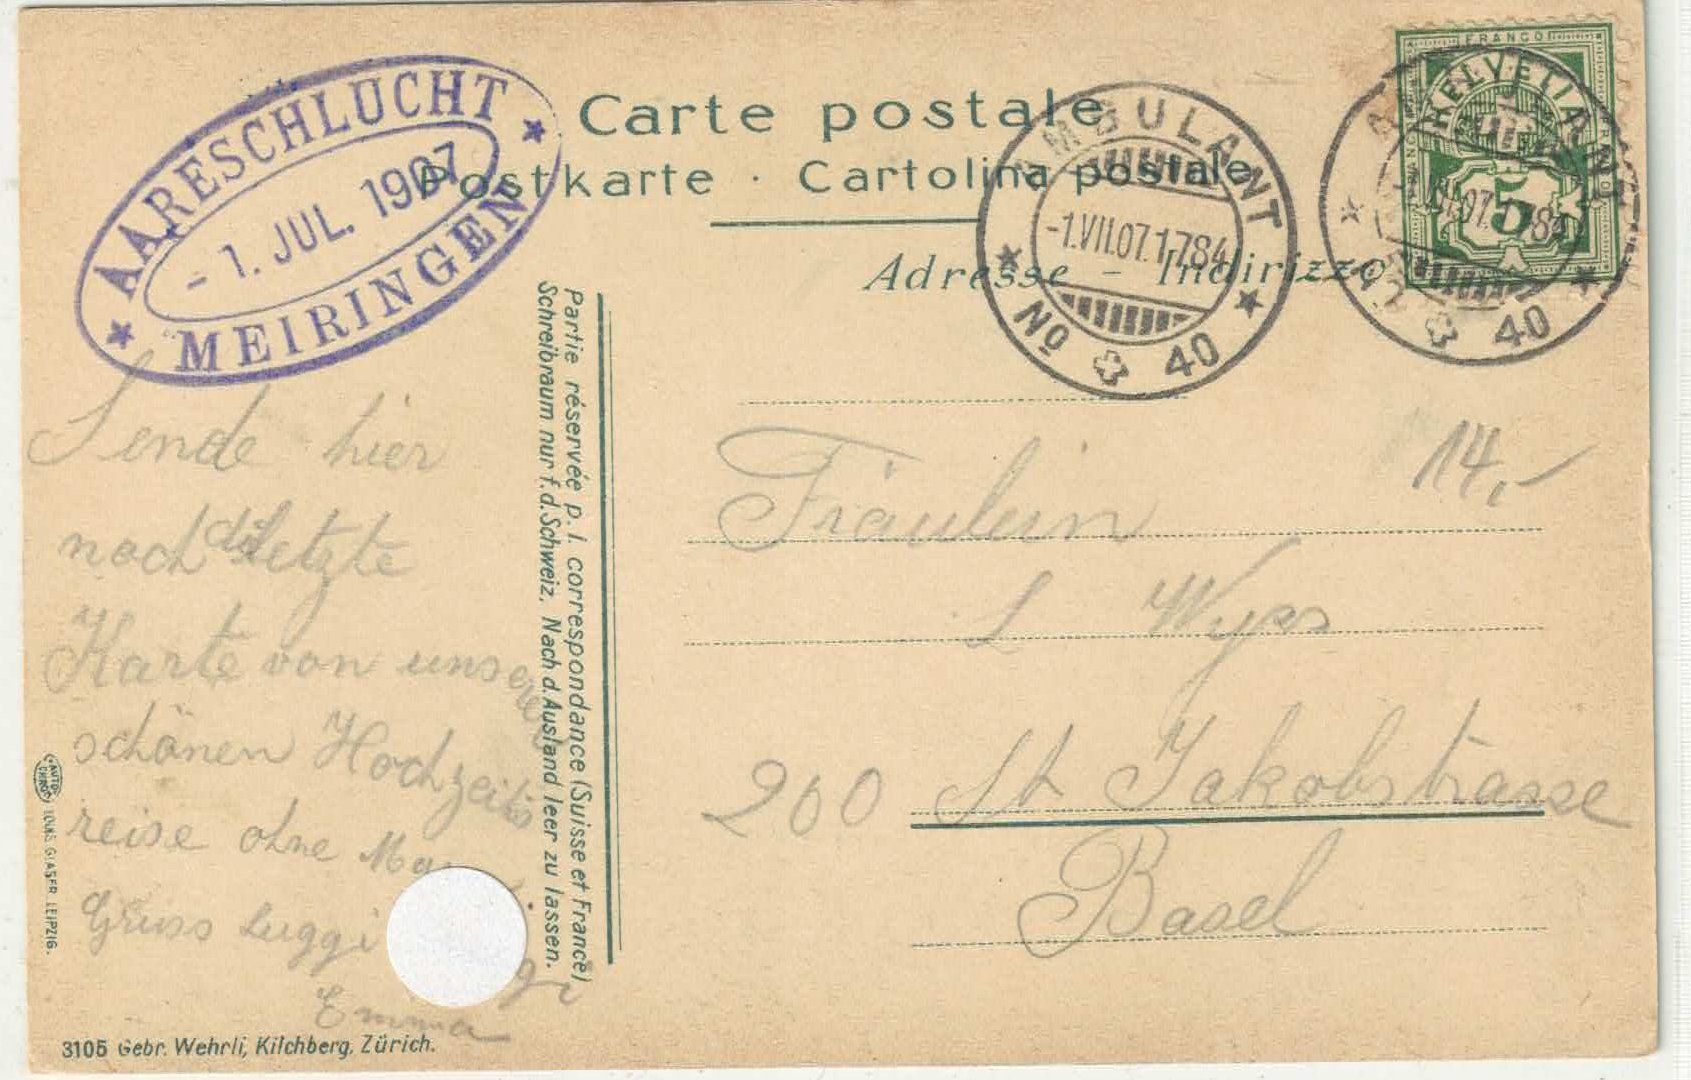 AARESCHLUCHT
- 1. JUL. 1907
MEIRINGEN
Carte postale
Postkarte · Cartolina postale
Adresse - Indirizzo
AMBULANT
-1.VII.07.1784
No 40
FRANCO
HELVETIA
5
AMBULANT
40
Partie réservée p. l correspondance (Suisse et France)
Schreibraum nur f.d.Schweiz. Nach d.Ausland leer zu lassen.
Sende hier
noch die letzte
Karte von unserer
schönen Hochzeits
reise ohne
Gruss Luggi
Emma
14,-
Fräulein
L Wyss
260 St Jakobstrasse
Basel
AUTO CHROM LOUIS GLASER LEIPZIG.
3105 Gebr. Wehrli, Kilchberg, Zürich.